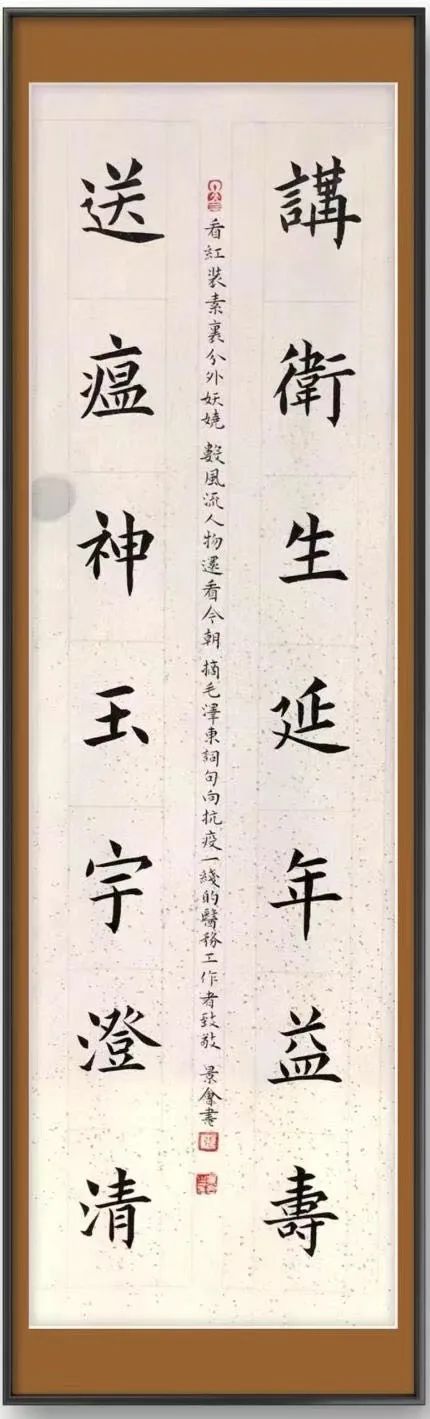 講衛生延年益壽
看紅裝素裹分外妖嬈 數風流人物還看今朝 摘毛澤東詞句向抗疫一綫的醫務工作者致敬 景會書
送瘟神玉宇澄清